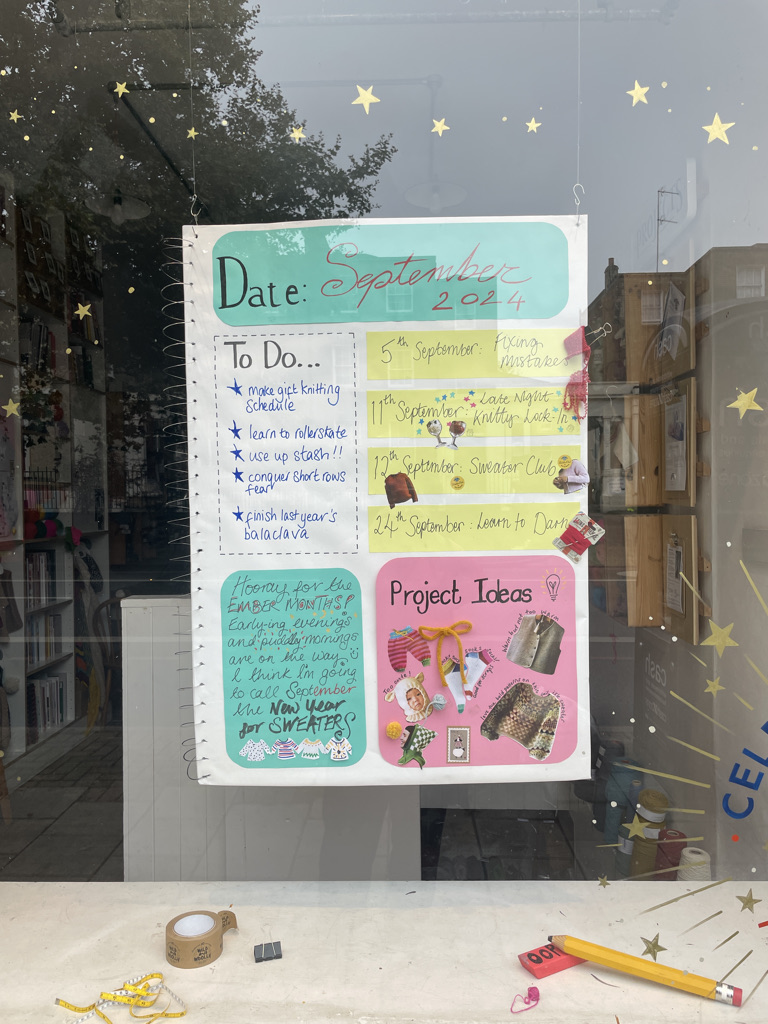 Date: September
2024
To Do...
make gift knitting
schedule
learn to rollerskate
use up stash!!
conquer short rows
fear
finish last year's
balaclava
5th September: Fixing
Mistakes
11th September: Late Night
Knitty Lock-In
12th September: Sweater Club
24th September: Learn to Darn
Hooray for the
EMBER MONTHS!
Early-ing evenings
and puddly mornings
are on the way
I think I'm going
to call September
the New Year
for SWEATERS
Project Ideas
CEL